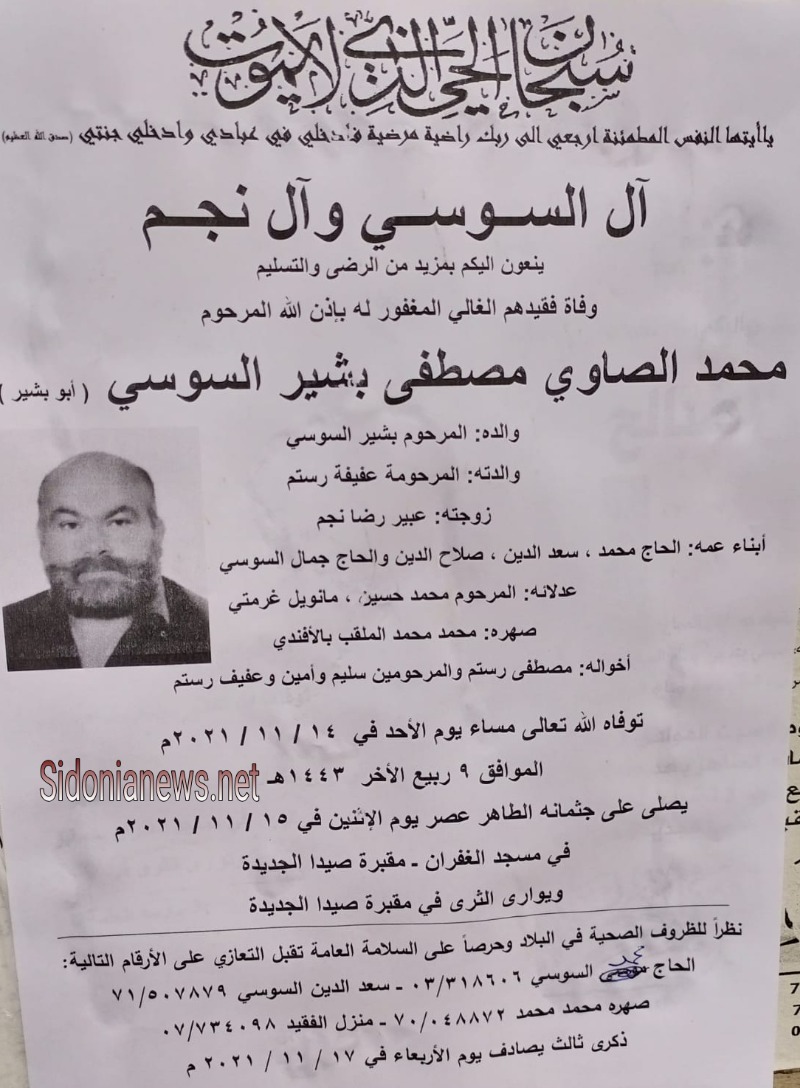 سبحان الحي الذي لا يموت
ياأيتها النفس المطمئنة ارجعي الى ربك راضية مرضية فادخلي في عبادي وادخلي جنتي (صدق الله العظيم)
آل السوسي وآل نجم
ينعون اليكم بمزيد من الرضى والتسليم
وفاة فقيدهم الغالي المغفور له بإذن الله المرحوم
محمد الصاوي مصطفى بشير السوسي ( أبو بشير )
والده: المرحوم بشير السوسي
والدته: المرحومة عفيفة رستم
زوجته: عبير رضا نجم
أبناء عمه: الحاج محمد ، سعد الدين ، صلاح الدين والحاج جمال السوسي
عدلائه: المرحوم محمد حسين ، مانويل غرمتي
صهره: محمد محمد الملقب بالأفندي
أخواله: مصطفى رستم والمرحومين سليم وأمين وعفيف رستم
توفاه الله تعالى مساء يوم الأحد في ١٤ / ١١ / ٢٠٢١م
الموافق ٩ ربيع الأخر ١٤٤٣هـ
Sidonianews.net
يصلى على جثمانه الطاهر عصر يوم الإثنين في ١٥ / ١١ / ٢٠٢١م
في مسجد الغفران - مقبرة صيدا الجديدة
ويوارى الثرى في مقبرة صيدا الجديدة
نظراً للظروف الصحية في البلاد وحرصاً على السلامة العامة تقبل التعازي على الأرقام التالية:
الحاج محمد السوسي ٠٣/٣١٨٦٠٦ - سعد الدين السوسي ٧١/٥٠٧٨٧٩
صهره محمد محمد ٧٠/٠٤٨٨٧٢ - منزل الفقيد ٠٧/٧٣٤٠٩٨
ذكرى ثالث يصادف يوم الأربعاء في ١٧ / ١١ / ٢٠٢١ م